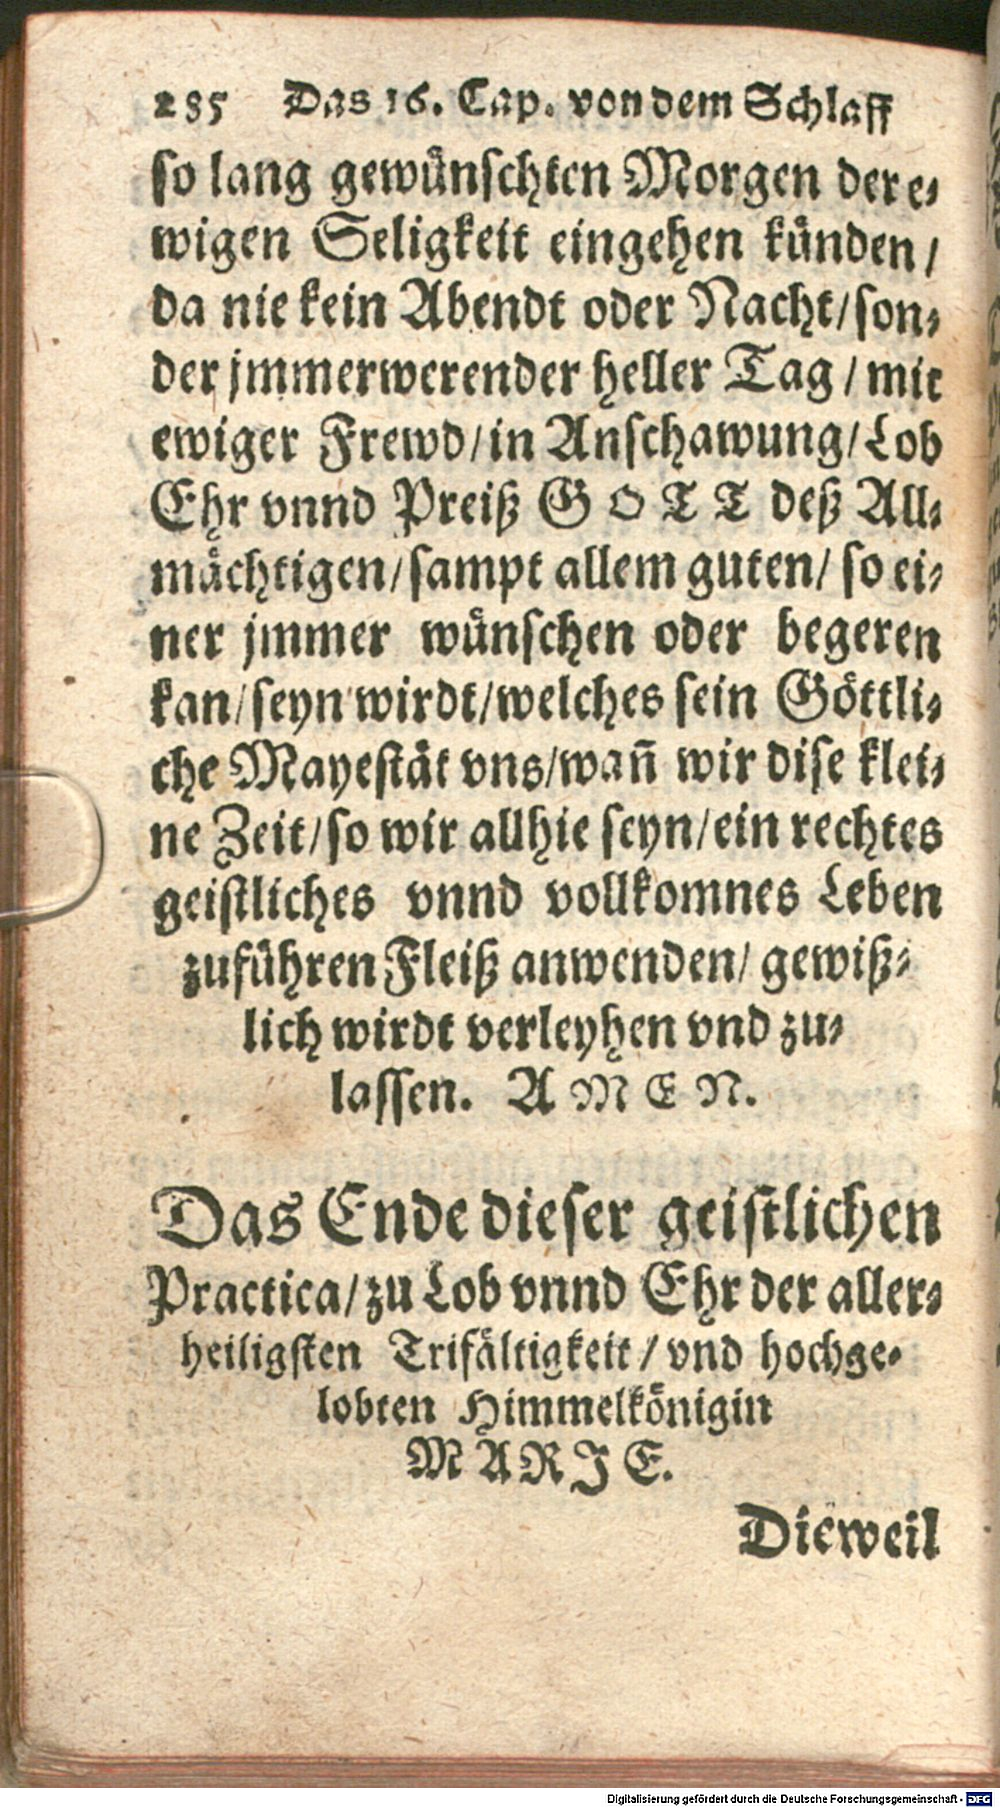 285 Das 16. Cap. von dem Schlaff
so lang gewünschten Morgen der e-
wigen Seligkeit eingehen künden/
da nie kein Abendt oder Nacht/son-
der jmmerwerender heller Tag / mit
ewiger Frewd/in Anschawung/Lob
Ehr vnnd Preiß GOTT deß All-
mächtigen/sampt allem guten/ so ei-
ner jmmer wünschen oder begeren
kan/seyn wirdt/welches sein Göttli-
che Mayestät vns/wañ wir dise klei-
ne Zeit/so wir allhie seyn/ein rechtes
geistliches vnnd vollkomnes Leben
zuführen Fleiß anwenden/ gewiß-
lich wirdt verleyhen vnd zu-
lassen. AMEN.
Das Ende dieser geistlichen
Practica/zu Lob vnnd Ehr der aller-
heiligsten Trifältigkeit / vnd hochge-
lobten Himmelkönigin
MARJE.
Dieweil
Digitalisierung gefördert durch die Deutsche Forschungsgemeinschaft - DFG